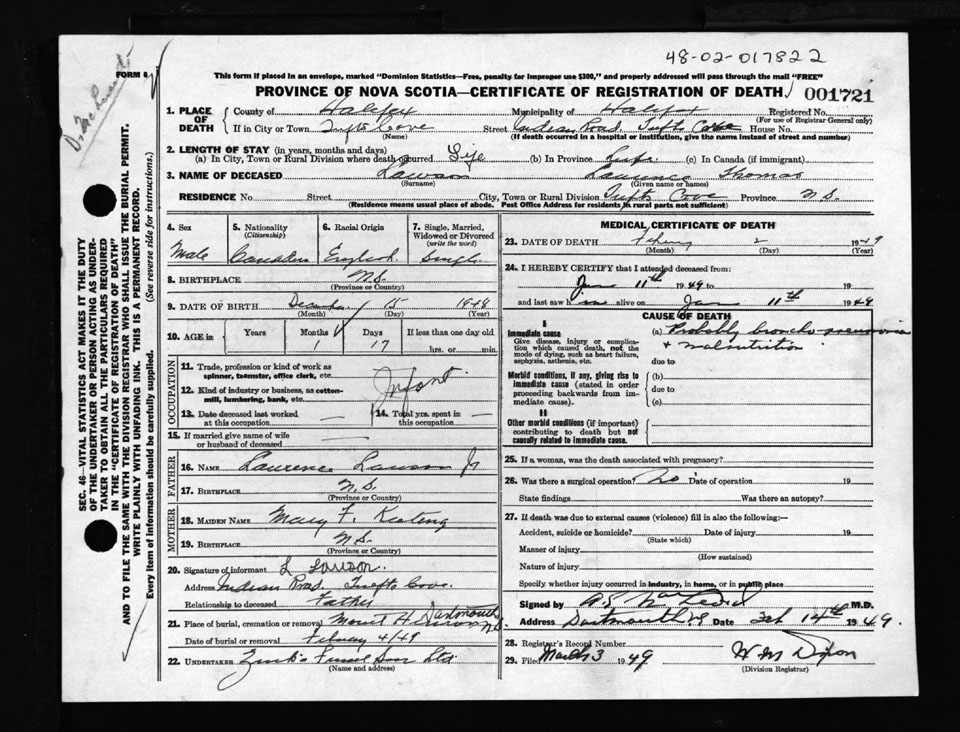 48-02-017822
FORM 6
This form if placed in an envelope, marked "Dominion Statistics—Free, penalty for improper use $300," and properly addressed will pass through the mail "FREE"
PROVINCE OF NOVA SCOTIA—CERTIFICATE OF REGISTRATION OF DEATH 001721
1. PLACE OF DEATH County of Halifax Municipality of Halifax Registered No.
(For use of Registrar General only)
If in City or Town Tufts Cove Street Indian Road, Tufts Cove House No.
(Name) (If death occurred in a hospital or institution, give the name instead of street and number)
2. LENGTH OF STAY (in years, months and days)
(a) In City, Town or Rural Division where death occurred Life (b) In Province Life (c) In Canada (if immigrant)
3. NAME OF DECEASED Lawson Laurence Thomas
(Surname) (Given name or names)
RESIDENCE No. Street City, Town or Rural Division Tufts Cove Province N.S.
(Residence means usual place of abode. Post Office Address for residents in rural parts not sufficient)
4. Sex 5. Nationality (Citizenship) 6. Racial Origin 7. Single, Married, Widowed or Divorced (write the word)
Male Canadian English Single
8. BIRTHPLACE N.S.
(Province or Country)
9. DATE OF BIRTH December 15 1948
(Month) (Day) (Year)
10. AGE in Years Months Days If less than one day old
1 17 hrs. or min.
OCCUPATION
11. Trade, profession or kind of work as spinner, teamster, office clerk, etc.
Infant
12. Kind of industry or business, as cotton-mill, lumbering, bank, etc.
13. Date deceased last worked at this occupation — 14. Total yrs. spent in this occupation —
15. If married give name of wife or husband of deceased —
FATHER
16. NAME Laurence Lawson Jr
17. BIRTHPLACE N.S.
(Province or Country)
MOTHER
18. MAIDEN NAME Mary F. Keating
19. BIRTHPLACE N.S.
(Province or Country)
20. Signature of informant L Lawson
Address Indian Road, Tufts Cove.
Relationship to deceased Father
21. Place of burial, cremation or removal Mount Hermon Dartmouth N.S.
Date of burial or removal 4/49
22. UNDERTAKER Zink's Ltd
(Name and address)
MEDICAL CERTIFICATE OF DEATH
23. DATE OF DEATH 2 1949
(Month) (Day) (Year)
24. I HEREBY CERTIFY that I attended deceased from:
Jan 11th 1949 to 19
and last saw alive on Jan 11th 1949
CAUSE OF DEATH
I
Immediate cause
Give disease, injury or complication which caused death, not the mode of dying, such as heart failure, asphyxia, asthenia, etc.
(a) Probably broncho pneumonia
+ malnutrition
due to
Morbid conditions, if any, giving rise to immediate cause (stated in order proceeding backwards from immediate cause).
(b)
due to
(c)
II
Other morbid conditions (if important) contributing to death but not causally related to immediate cause.
25. If a woman, was the death associated with pregnancy?
26. Was there a surgical operation? No Date of operation 19
State findings Was there an autopsy?
27. If death was due to external causes (violence) fill in also the following:—
Accident, suicide or homicide? Date of injury 19
(State which)
Manner of injury
(How sustained)
Nature of injury
Specify whether injury occurred in industry, in home, or in public place
Signed by M.D.
Address Dartmouth NS Date 14th 1949.
28. Registrar's Record Number
29. Filed March 3 1949 W M Dixon
(Division Registrar)
SEC. 46—VITAL STATISTICS ACT MAKES IT THE DUTY
OF THE UNDERTAKER OR PERSON ACTING AS UNDER-
TAKER TO OBTAIN ALL THE PARTICULARS REQUIRED
IN THE "CERTIFICATE OF REGISTRATION OF DEATH"
AND TO FILE THE SAME WITH THE DIVISION REGISTRAR WHO SHALL ISSUE THE BURIAL PERMIT.
WRITE PLAINLY WITH UNFADING INK. THIS IS A PERMANENT RECORD.
Every item of information should be carefully supplied. (See reverse side for instructions.)